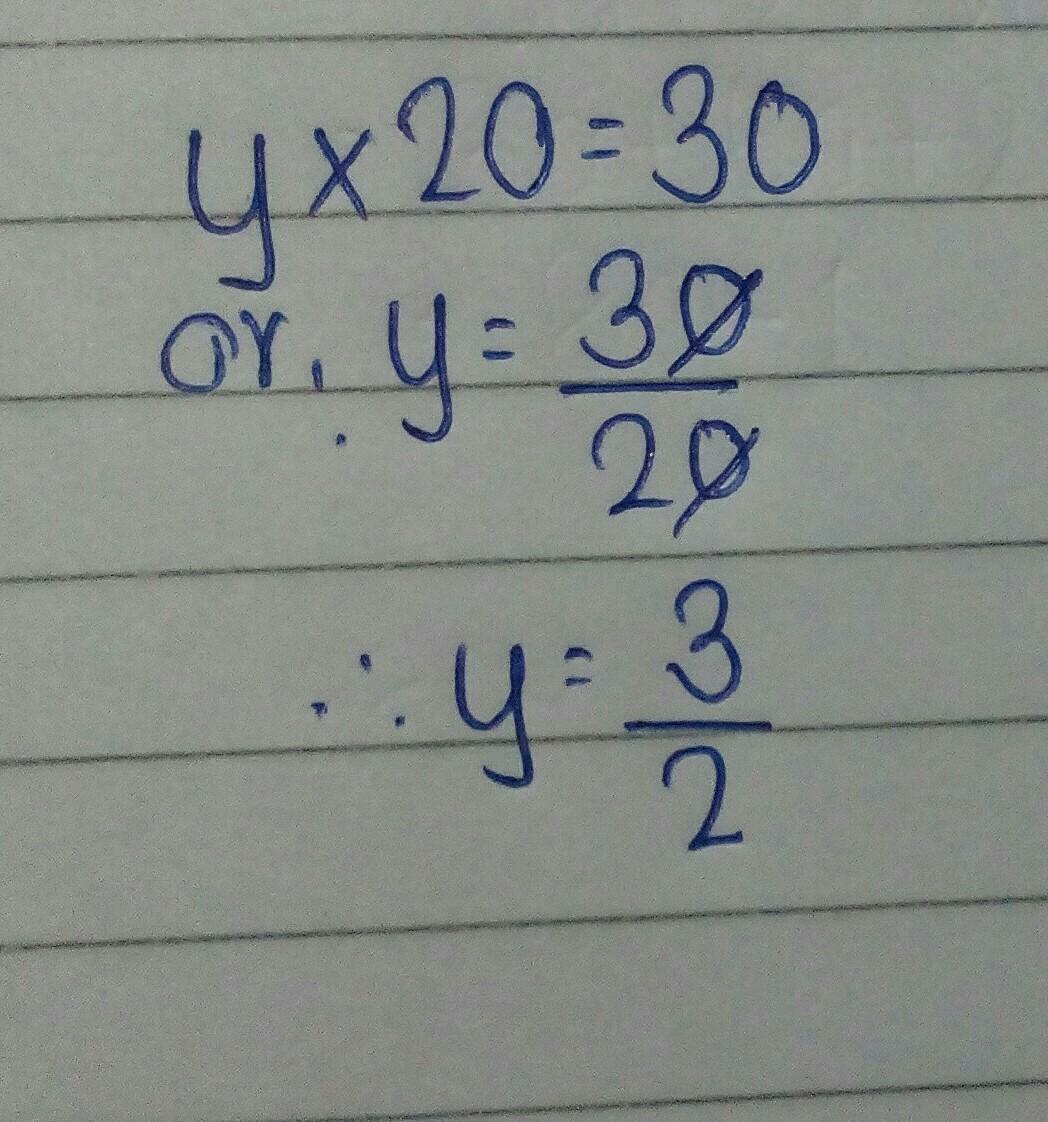 y × 20 = 30
or, y = 30/20
∴ y = 3/2